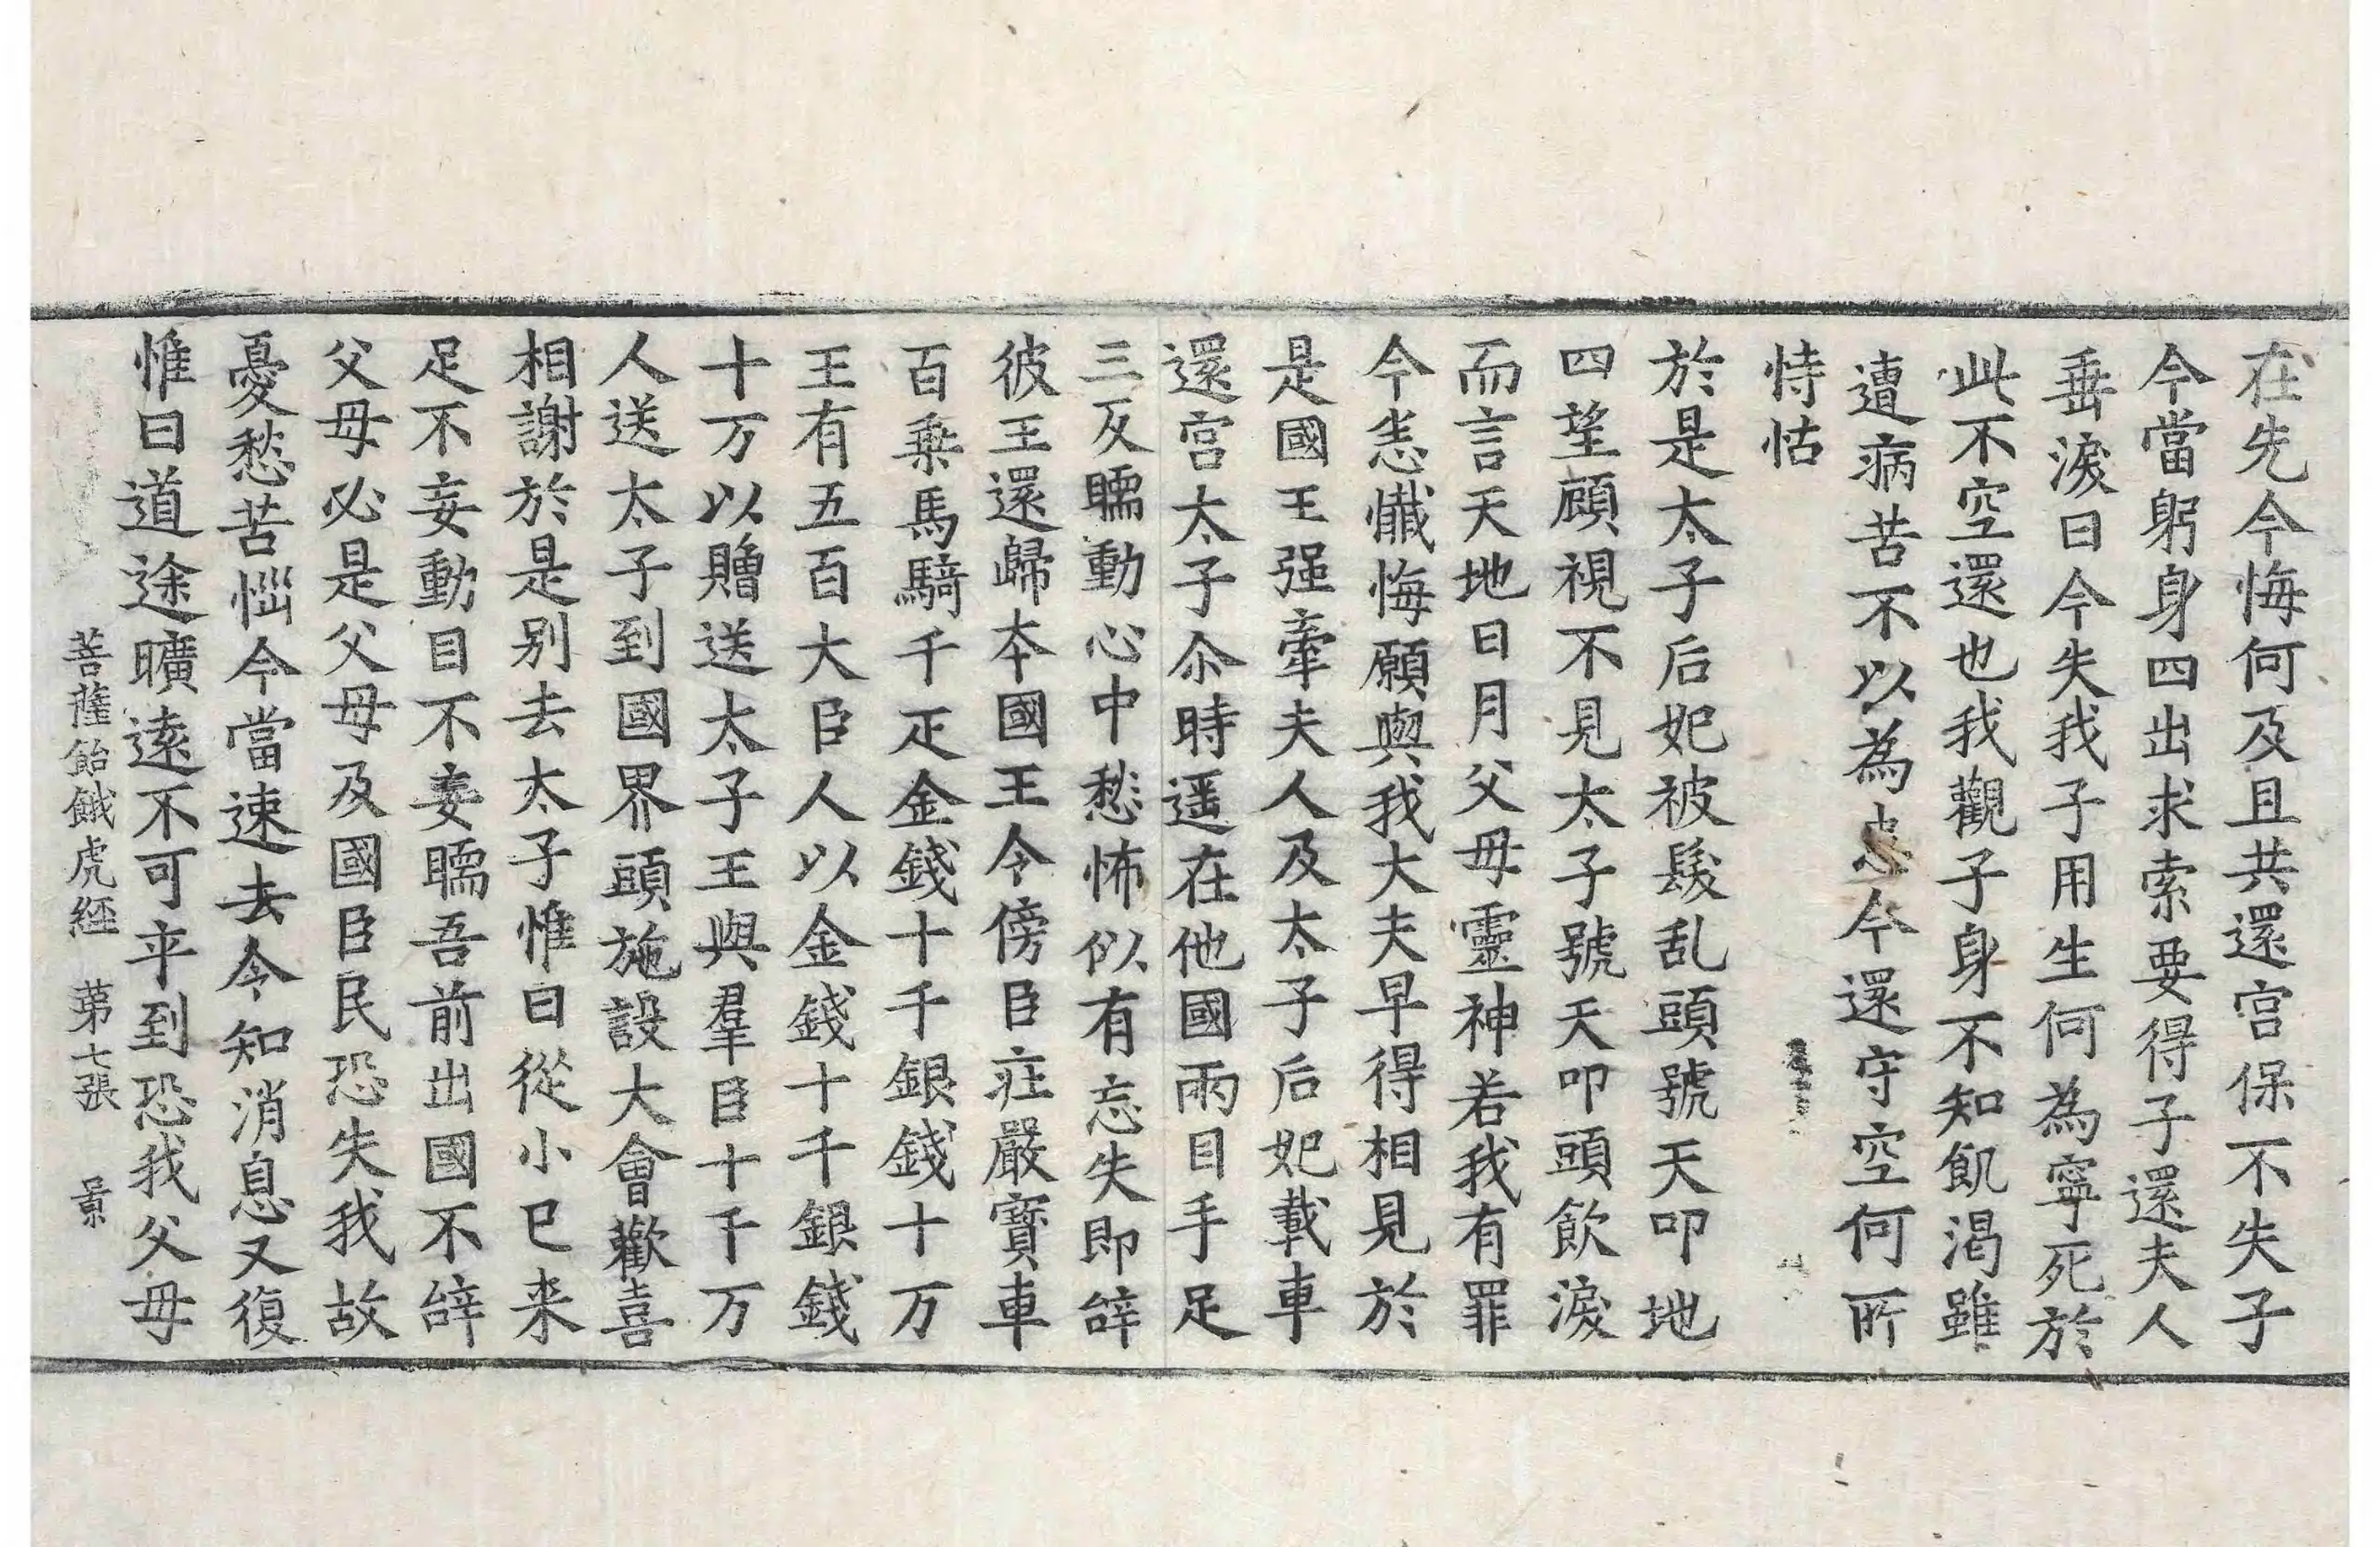 在先今悔何及且共還宮保不失子
今當躬身四出求索要得子還夫人
垂淚曰今失我子用生何為寧死於
此不空還也我觀子身不知飢渴雖
遭病苦不以為患今還守空何所
恃怙
於是太子后妃被髮乱頭號天叩地
四望顧視不見太子號天叩頭飲淚
而言天地日月父母靈神若我有罪
今悉懺悔願與我大夫早得相見於
是國王强牽夫人及太子后妃載車
還宮太子尒時遥在他國兩目手足
三反瞤動心中愁怖似有忘失即辝
彼王還歸本國王令傍臣莊嚴寳車
百乗馬騎千疋金錢十千銀錢十万
王有五百大臣人以金錢十千銀錢
十万以贈送太子王與羣臣十千万
人送太子到國界頭施設大會歡喜
相謝於是別去太子惟曰從小已来
足不妄動目不妄瞤吾前出國不辝
父母必是父母及國臣民恐失我故
憂愁苦惱今當速去令知消息又復
惟曰道途曠逺不可卒到恐我父母
菩薩飴餓虎經 第七張 景